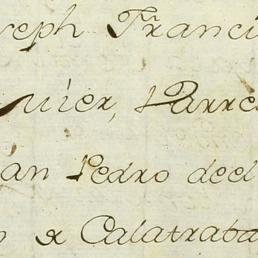 oseph Franci
Muier, Parre
an Pedro deel
o de Calatraba